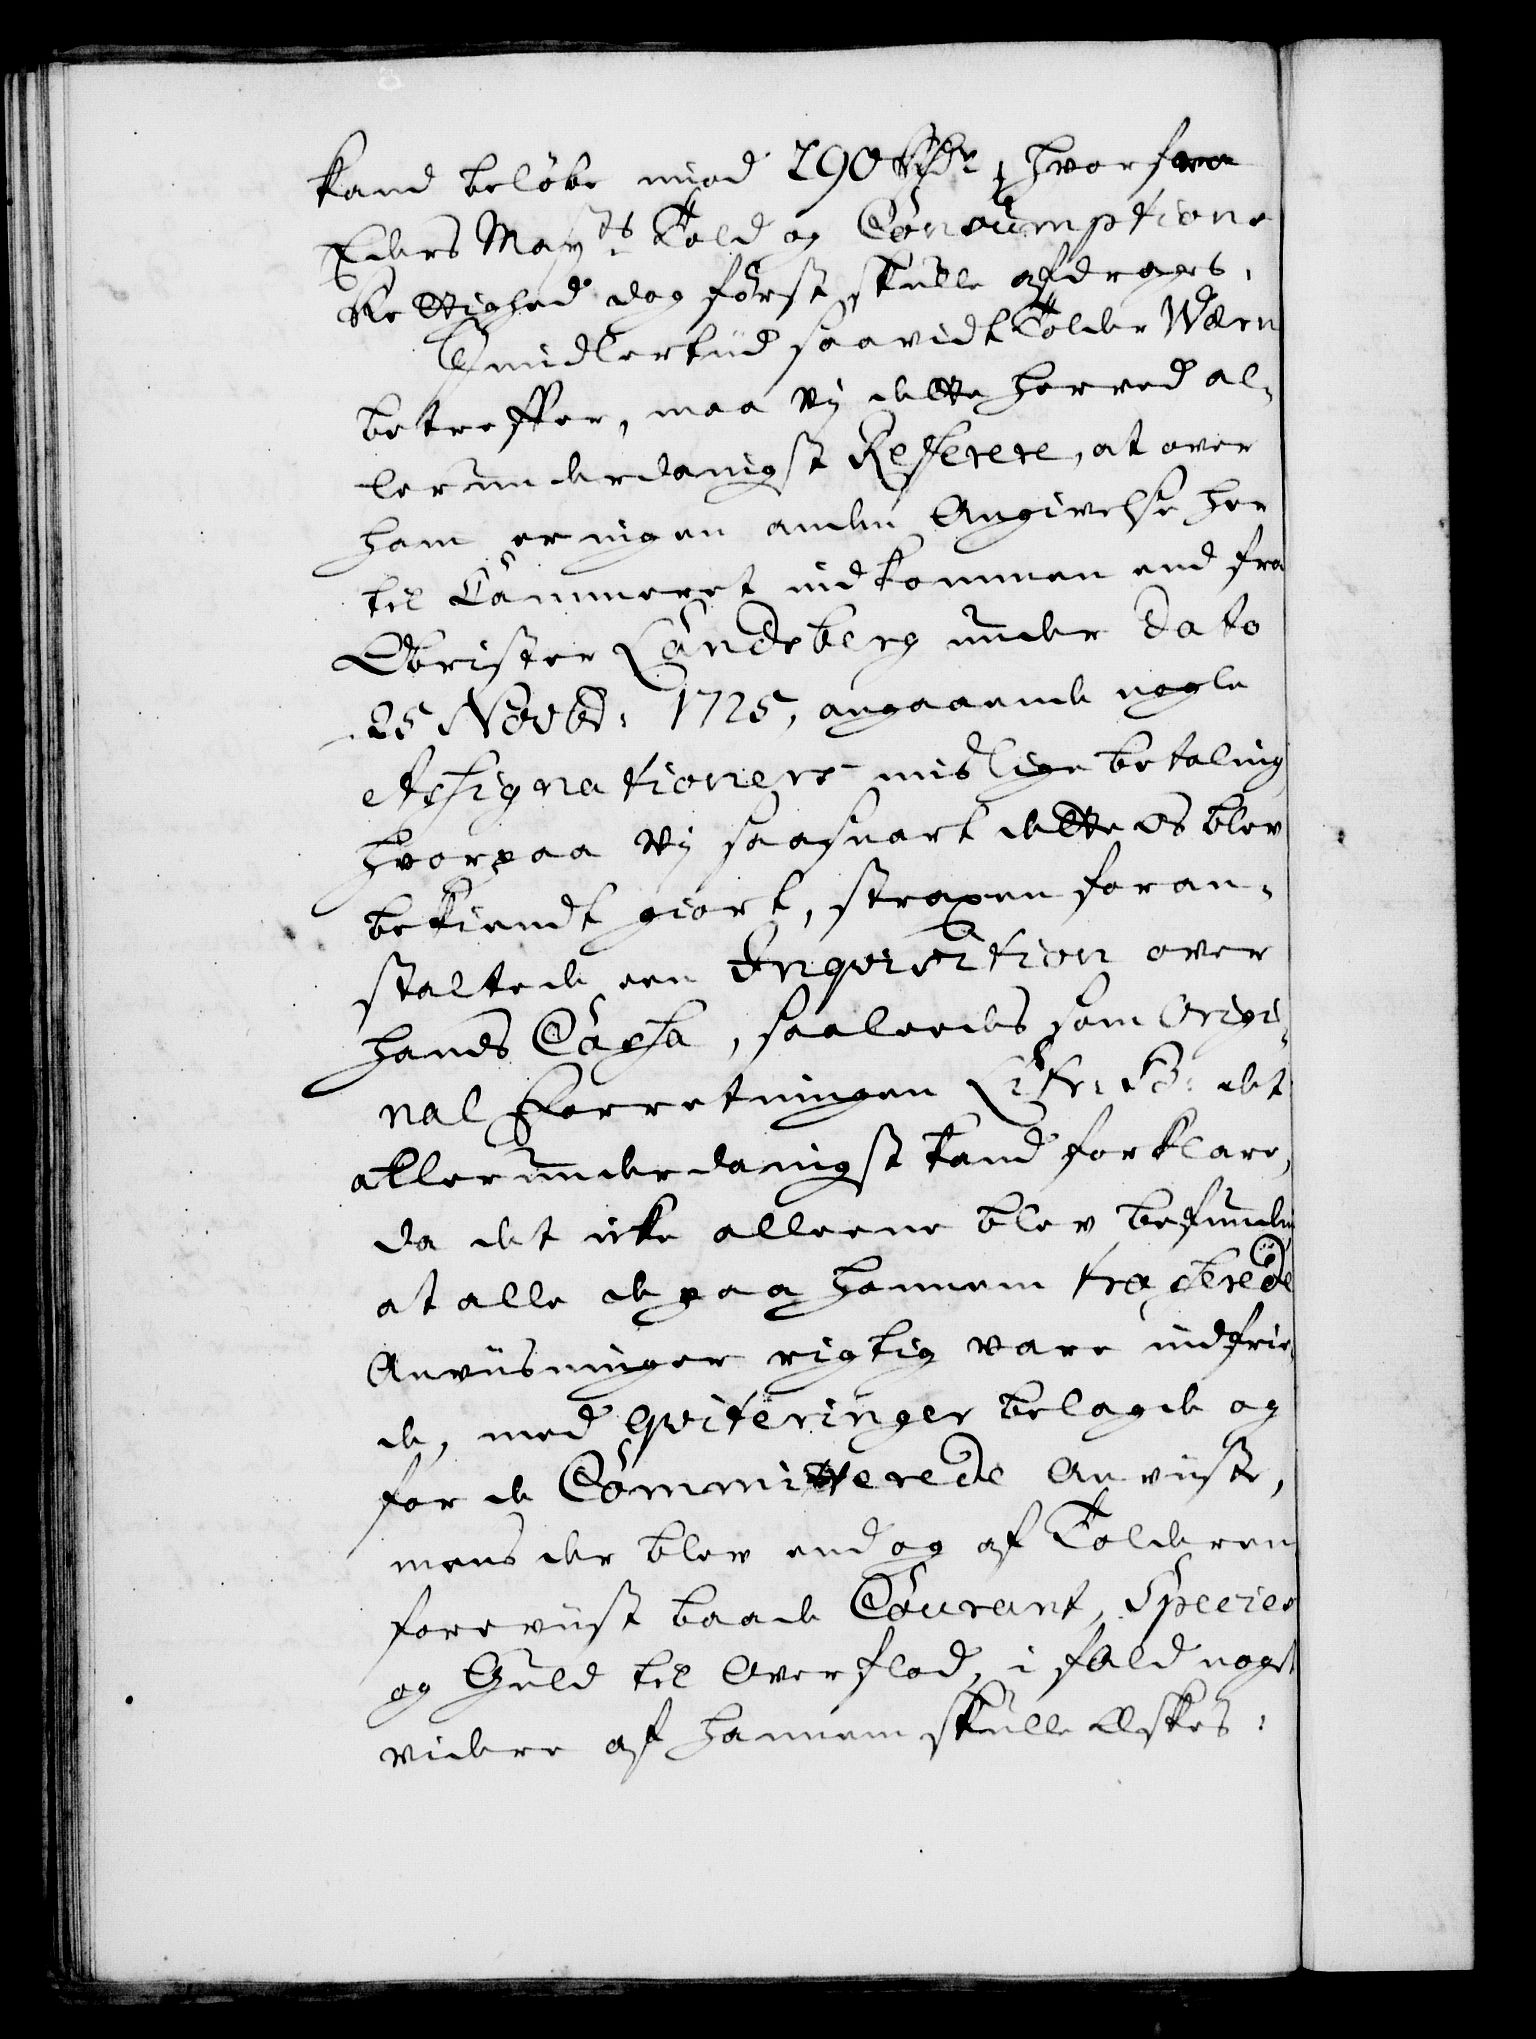 kand beløbe mod 290 Rdr, hvorfra
Eders May.ts Told og Consumptions
Rettighed dog først skulle afdrages.
Imidlertiid saavidt Tolder Wærn
betreffer, maa Vj dette herved al-
lerunderdanigst Referere, at over
ham er ingen anden Angivelse her
til Cammeret indkommen end fra
Obrister Landsberg under Dato
25 Novbr: 1725, angaaende nogle
Assignationers mislige betaling
hvorpaa Vj saasnart dette os blev
bekiendt giort, straxen foran-
staltede een Inqvisition over
hands Cassa, saaledes som Origi-
nal Forretningen Litr: B: det
allerunderdanigst kand forklare,
da det icke alleene blev befunden
at alle de paa hannem traherede
Anviisninger rigtig vare indfrie-
de, med Qviteringer belagde og
for de Committerede Anviiste,
mens der blev end og af Tolderen
foreviist baade Courant, Species
og Guld til Overflod, i fald noget
videre af hannem skulle Æskes: